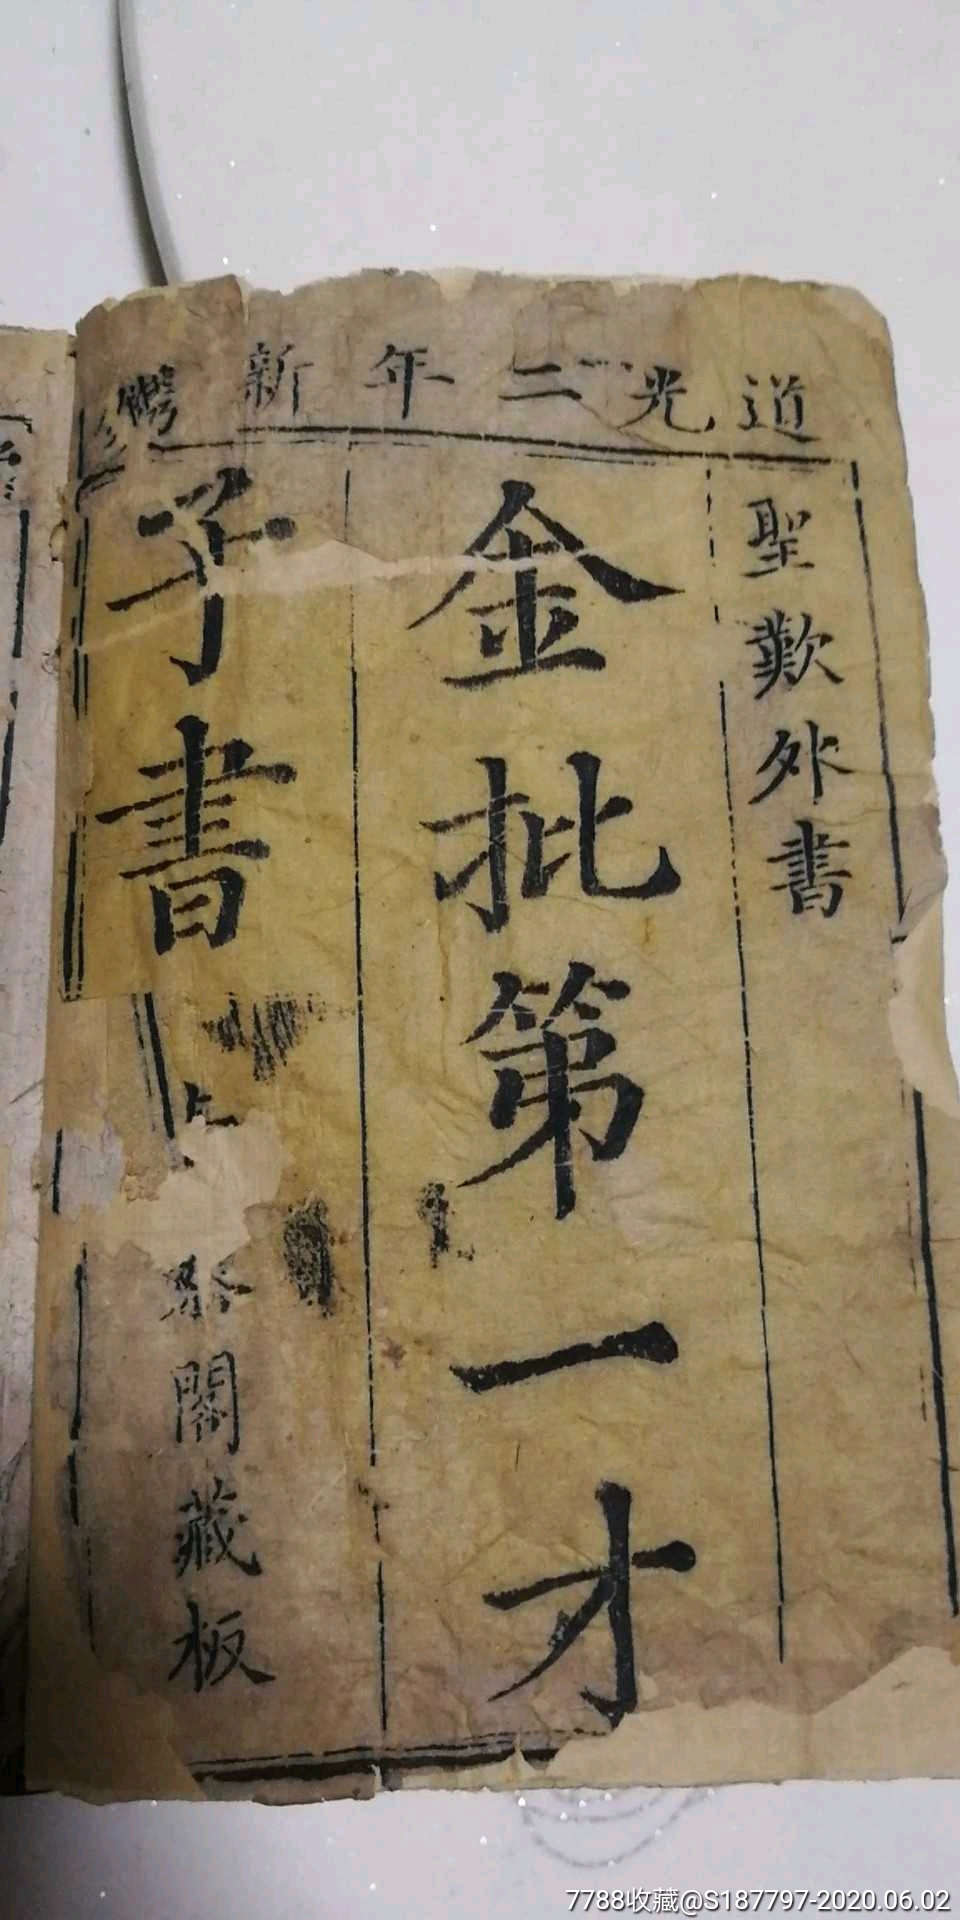 道光二年新鐫
聖歎外書
金批第一才
子書
閣藏板
7788收藏@S187797-2020.06.02